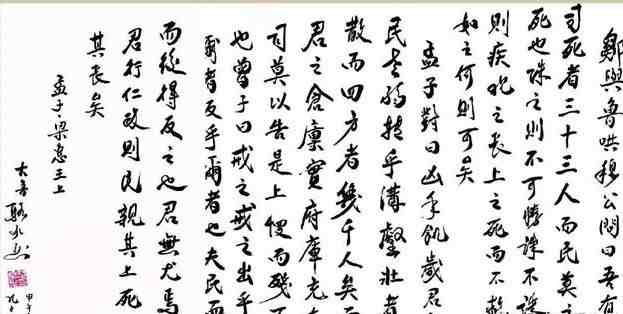 鄒與魯哄穆公問曰吾有
司死者三十三人而民莫之
死也誅之則不可勝誅不誅
則疾視之長上之死而不
如之何則可矣
孟子對曰凶年飢歲君
民老弱轉乎溝壑壯者
散而四方者幾千人矣而
君之倉廩實府庫充
司莫以告是上慢而殘
也曾子曰戒之戒之出乎
爾者反乎爾者也夫民而
而後得反之也君無尤焉
君行仁政則民親其上死
其長矣
孟子·梁惠王上
甲午